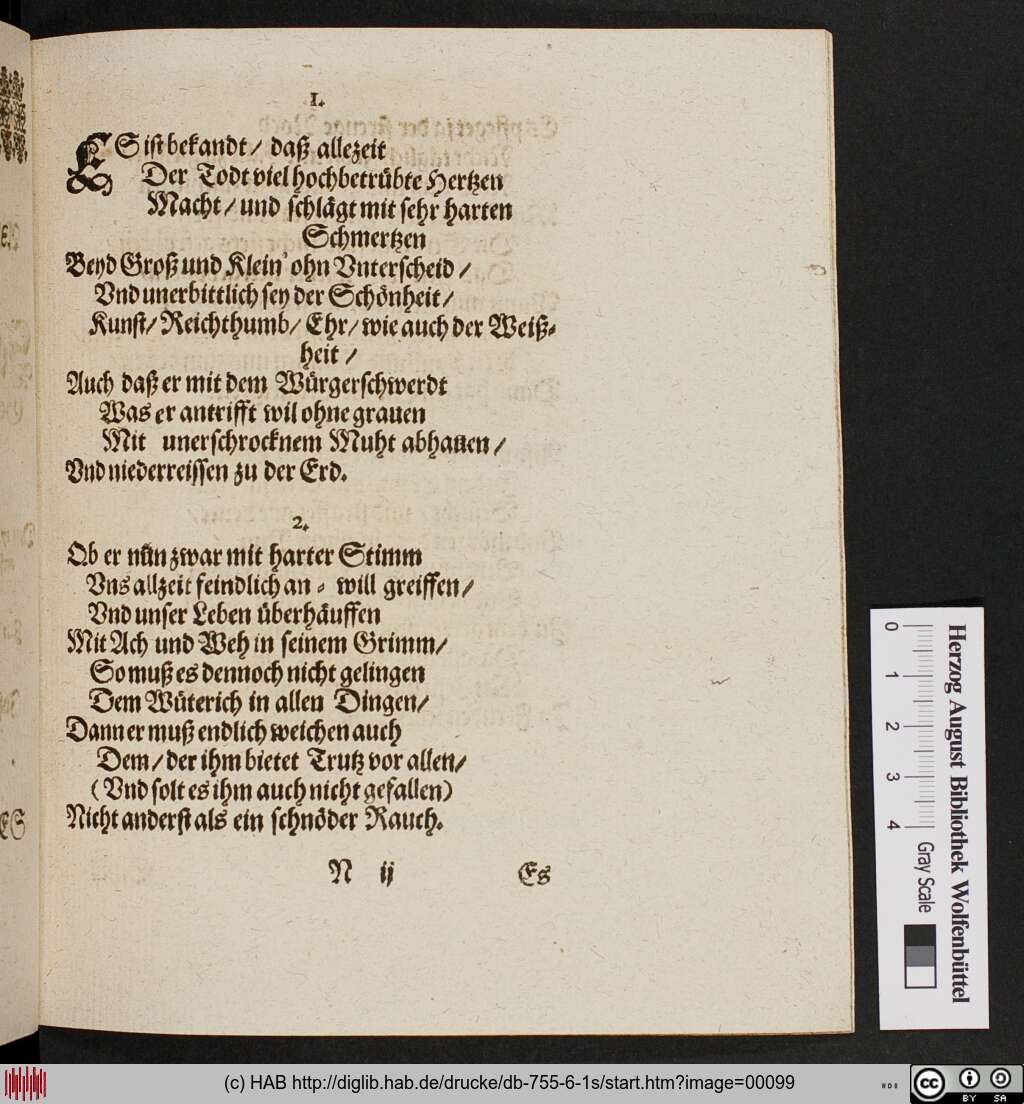 1.
ES ist bekandt / daß allezeit
Der Todt viel hochbetrübte Hertzen
Macht / und schlägt mit sehr harten
Schmertzen
Beyd Groß und Klein' ohn Vnterscheid /
Vnd unerbittlich sey der Schönheit /
Kunst / Reichthumb / Ehr / wie auch der Weiß-
heit /
Auch daß er mit dem Würgerschwerdt
Was er antrifft wil ohne grauen
Mit unerschrocknem Muht abhauen /
Vnd niederreissen zu der Erd.
2.
Ob er nun zwar mit harter Stimm
Vns allzeit feindlich an - will greiffen /
Vnd unser Leben überhäuffen
Mit Ach und Weh in seinem Grimm /
So muß es dennoch nicht gelingen
Dem Wüterich in allen Dingen /
Dann er muß endlich weichen auch
Dem / der ihm bietet Trutz vor allen /
(Vnd solt es ihm auch nicht gefallen)
Nicht anderst als ein schnöder Rauch.
N ij Es
Herzog August Bibliothek Wolfenbüttel
0 1 2 3 4 Gray Scale
(c) HAB http://diglib.hab.de/drucke/db-755-6-1s/start.htm?image=00099
cc BY SA